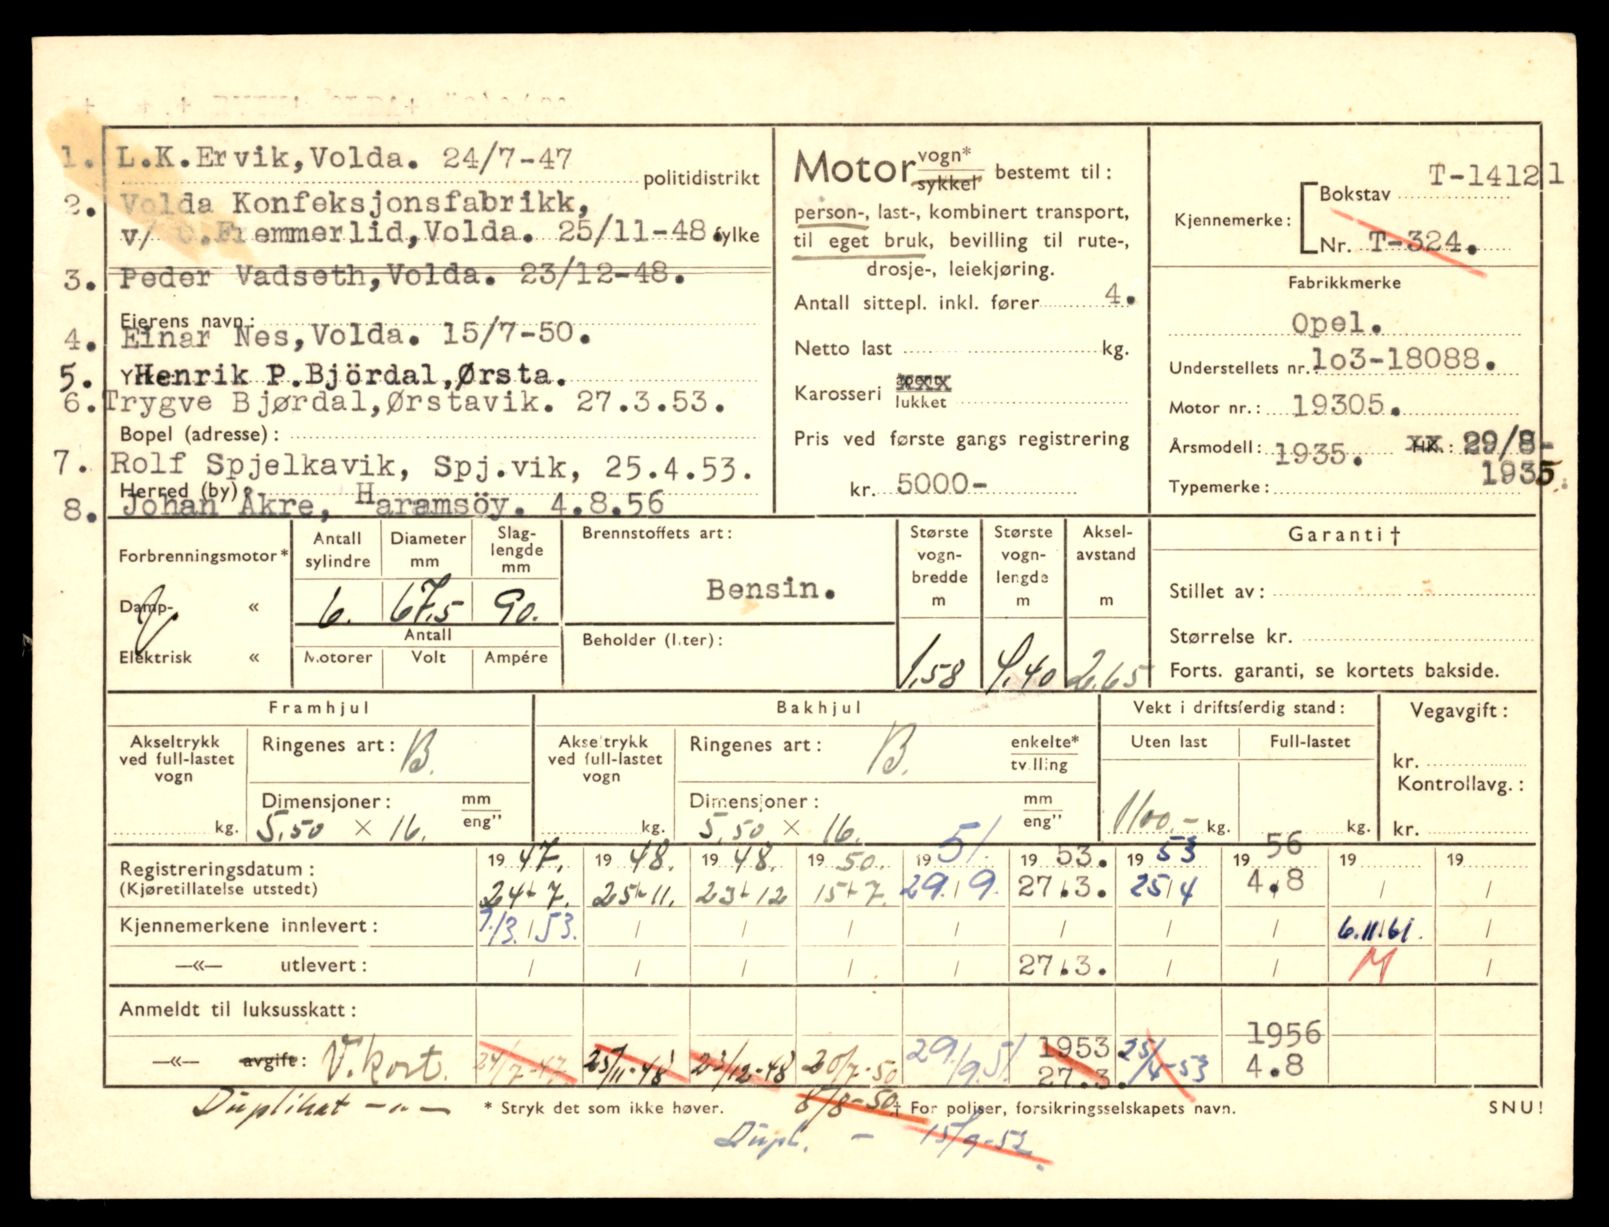 1. L.K.Ervik,Volda. 24/7-47
politidistrikt
2. Volda Konfeksjonsfabrikk,
v/ O.Fremmerlid,Volda. 25/11-48.
fylke
3. Peder Vadseth,Volda. 23/12-48.
Eierens navn:
4. Einar Nes,Volda. 15/7-50.
5. Henrik P.Björdal,Ørsta.
6. Trygve Bjørdal,Ørstavik. 27.3.53.
Bopel (adresse):
7. Rolf Spjelkavik, Spj.vik, 25.4.53.
Herred (by):
8. Johan Åkre, Haramsöy. 4.8.56
Motor vogn*
sykkel*
bestemt til:
person-, last-, kombinert transport,
til eget bruk, bevilling til rute-,
drosje-, leiekjøring.
Antall sittepl. inkl. fører 4.
Netto last kg.
Karosseri åpent xxx
lukket
Pris ved første gangs registrering
kr. 5000-
T-14121
Kjennemerke:
Bokstav
Nr. T-324.
Fabrikkmerke
Opel.
Understellets nr. 1o3-18088.
Motor nr.: 19305.
Årsmodell: 1935. HK.: 29/8-
1935.
Typemerke:
Forbrenningsmotor*
Damp- «
Elektrisk «
Antall sylindre
Diameter mm
Slag-lengde mm
6. 67,5 90.
Antall
Motorer Volt Ampére
Brennstoffets art:
Bensin.
Beholder (l.ter):
Største vogn-bredde m
Største vogn-lengde m
Aksel-avstand m
1,58 4,40 2.65
Garanti †
Stillet av:
Størrelse kr.
Forts. garanti, se kortets bakside.
Framhjul
Akseltrykk ved full-lastet vogn
kg.
Ringenes art: B.
Dimensjoner: mm
eng"
5,50 × 16.
Bakhjul
Akseltrykk ved full-lastet vogn
kg.
Ringenes art: B.
enkelte*
tvilling
Dimensjoner: mm
eng"
5,50 × 16.
Vekt i driftsferdig stand:
Uten last Full-lastet
1100.- kg. kg.
Vegavgift:
kr.
Kontrollavg.:
kr.
Registreringsdatum: 19 47. 19 48. 19 48. 19 50. 19 51. 19 53. 19 53 19 56 19 19
(Kjøretillatelse utstedt) 24/7. 25/11. 23/12 15/7. 29/9. 27.3. 25/4 4.8 / /
Kjennemerkene innlevert: 7/3.53. / / / / / / / 6.11.61. /
—«— utlevert: / / / / / 27.3. / / M /
Anmeldt til luksusskatt:
—«— avgift: V.kort. 24/7-47 25/11-48 23/12-48 20/7-50 29/9.51. 1953 27.3. 25/4-53 1956 4.8
Duplikat —"— 8/8-50
* Stryk det som ikke høver.
† For poliser, forsikringsselskapets navn.
SNU!
Dupl. - 15/9-52.